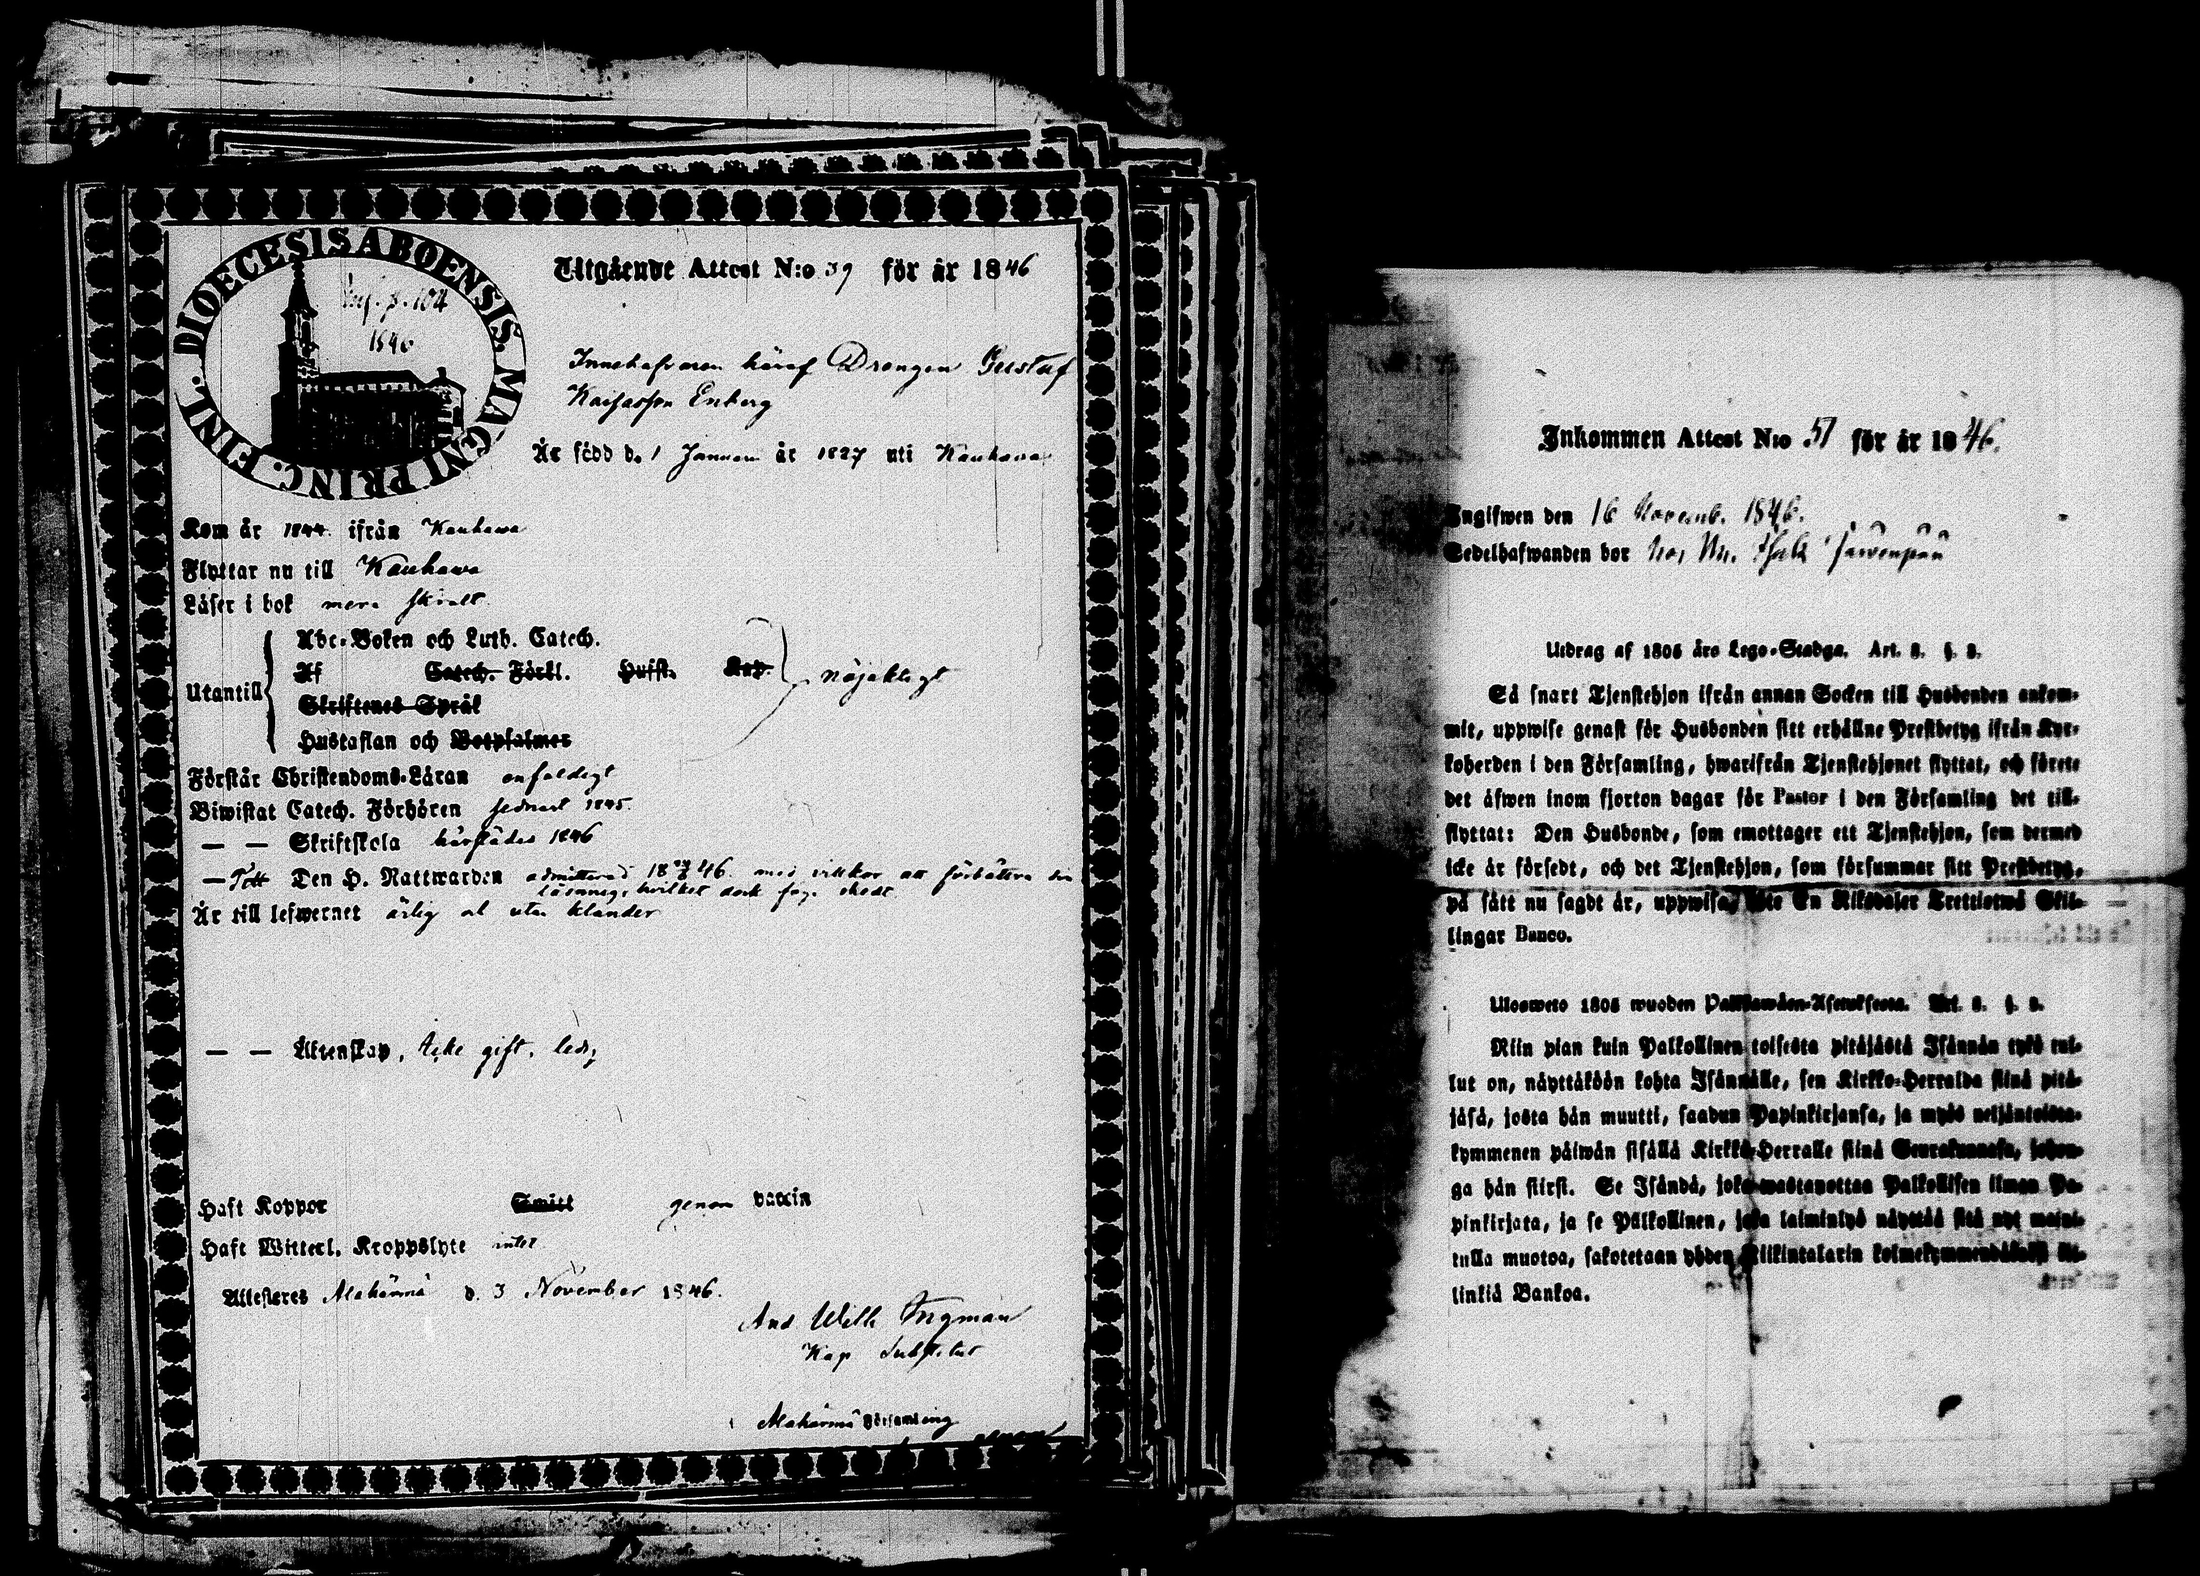 DIOECESIS ABOENSIS. MAGNI PRINC. FINL.
Inf. p. 104
1846
Utgående Attest N:o 39 för år 1846
Innehafvaren häraf Drengen Gustaf
Enberg
Är född d. 1 Januari år 1827 uti Kauhava
Kom år 1844 ifrån Kauhava
Flyttar nu till Kauhava
Läser i bok mera
Utantill
Abc-Boken och Luth. Catech.
Af Catech. Förkl. Hufst. Kap.
Skriftenes Språk
Hustaflan och Botpsalmer
nöjaktigt
Förstår Christendoms-Läran enfaldigt
Biwistat Catech. Förhören sednast 1845.
— — Skriftskola härstädes 1846
— Den H. Nattwarden admitterad 18 46. med villkor att förbättra sin
läsning, hvilket dock skedt.
Är till lefwernet ärlig ok utan klander
— — Äktenskap, icke gift, ledig
Haft Koppor Smitt genom vaccin
Haft Witterl. Kroppslyte intet
Attesteras Alahärmä d. 3 November 1846.
And Wilh Ingman
Kap Substitut
Alahärmä Församling
Inkommen Attest N:o 57 för år 1846.
Ingifwen den 16 Novemb. 1846.
Sedelhafwanden bor
Utdrag af 1805 års Lego-Stadga. Art. 8. §. 8.
Så snart Tjenstehjon ifrån annan Socken till Husbonden ankom-
mit, uppwise genast för Husbonden sitt erhållne Prestbetyg ifrån Kyr-
koherden i den Församling, hwarifrån Tjenstehjonet flyttat, och förete
det äfwen inom fjorton dagar för Pastor i den Församling det till-
flyttat: Den Husbonde, som emottager ett Tjenstehjon, som dermed
icke är försedt, och det Tjenstehjon, som försummar sitt Prestbetyg,
på sätt nu sagdt är, uppwisa, böte En Riksdaler Trettiotwå Skil-
lingar Banco.
Ulosweto 1805 wuoden Palkkawäen-Asetuksesta. Art. 8. §. 8.
Niin pian kuin Palkollinen toisesta pitäjästä Isännän tykö tul-
lut on, näyttäköön kohta Isännälle, sen Kirkko-Herralda siinä pitä-
jäsä, josta hän muutti, saadun Papinkirjansa, ja myös neljäntoista-
kymmenen päiwän sisällä Kirkko-Herralle siinä Seurakunnasa, johon-
ga hän siirsi. Se Isändä, joka wastanottaa Palkollisen ilman Pa-
pinkirjata, ja se Palkollinen, joka laiminlyö näyttää sitä nyt maini-
tulla muotoa, sakotetaan yhden Riikintalarin kolmekymmendäkaksi kil-
linkiä Bankoa.